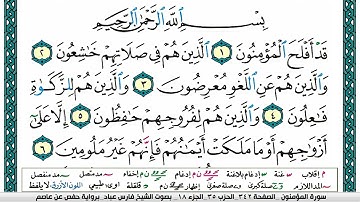 بِسْمِ اللَّهِ الرَّحْمَٰنِ الرَّحِيمِ
قَدْ أَفْلَحَ الْمُؤْمِنُونَ ١ الَّذِينَ هُمْ فِي صَلَاتِهِمْ خَٰشِعُونَ ٢
وَالَّذِينَ هُمْ عَنِ اللَّغْوِ مُعْرِضُونَ ٣ وَالَّذِينَ هُمْ لِلزَّكَوٰةِ
فَٰعِلُونَ ٤ وَالَّذِينَ هُمْ لِفُرُوجِهِمْ حَٰفِظُونَ ٥ إِلَّا عَلَىٰ
أَزْوَٰجِهِمْ أَوْ مَا مَلَكَتْ أَيْمَٰنُهُمْ فَإِنَّهُمْ غَيْرُ مَلُومِينَ ٦
سورة المؤمنون . الصفحة ٣٤٢ . الحزب ٣٥ . الجزء ١٨ . بصوت الشيخ فارس عباد . برواية حفص عن عاصم